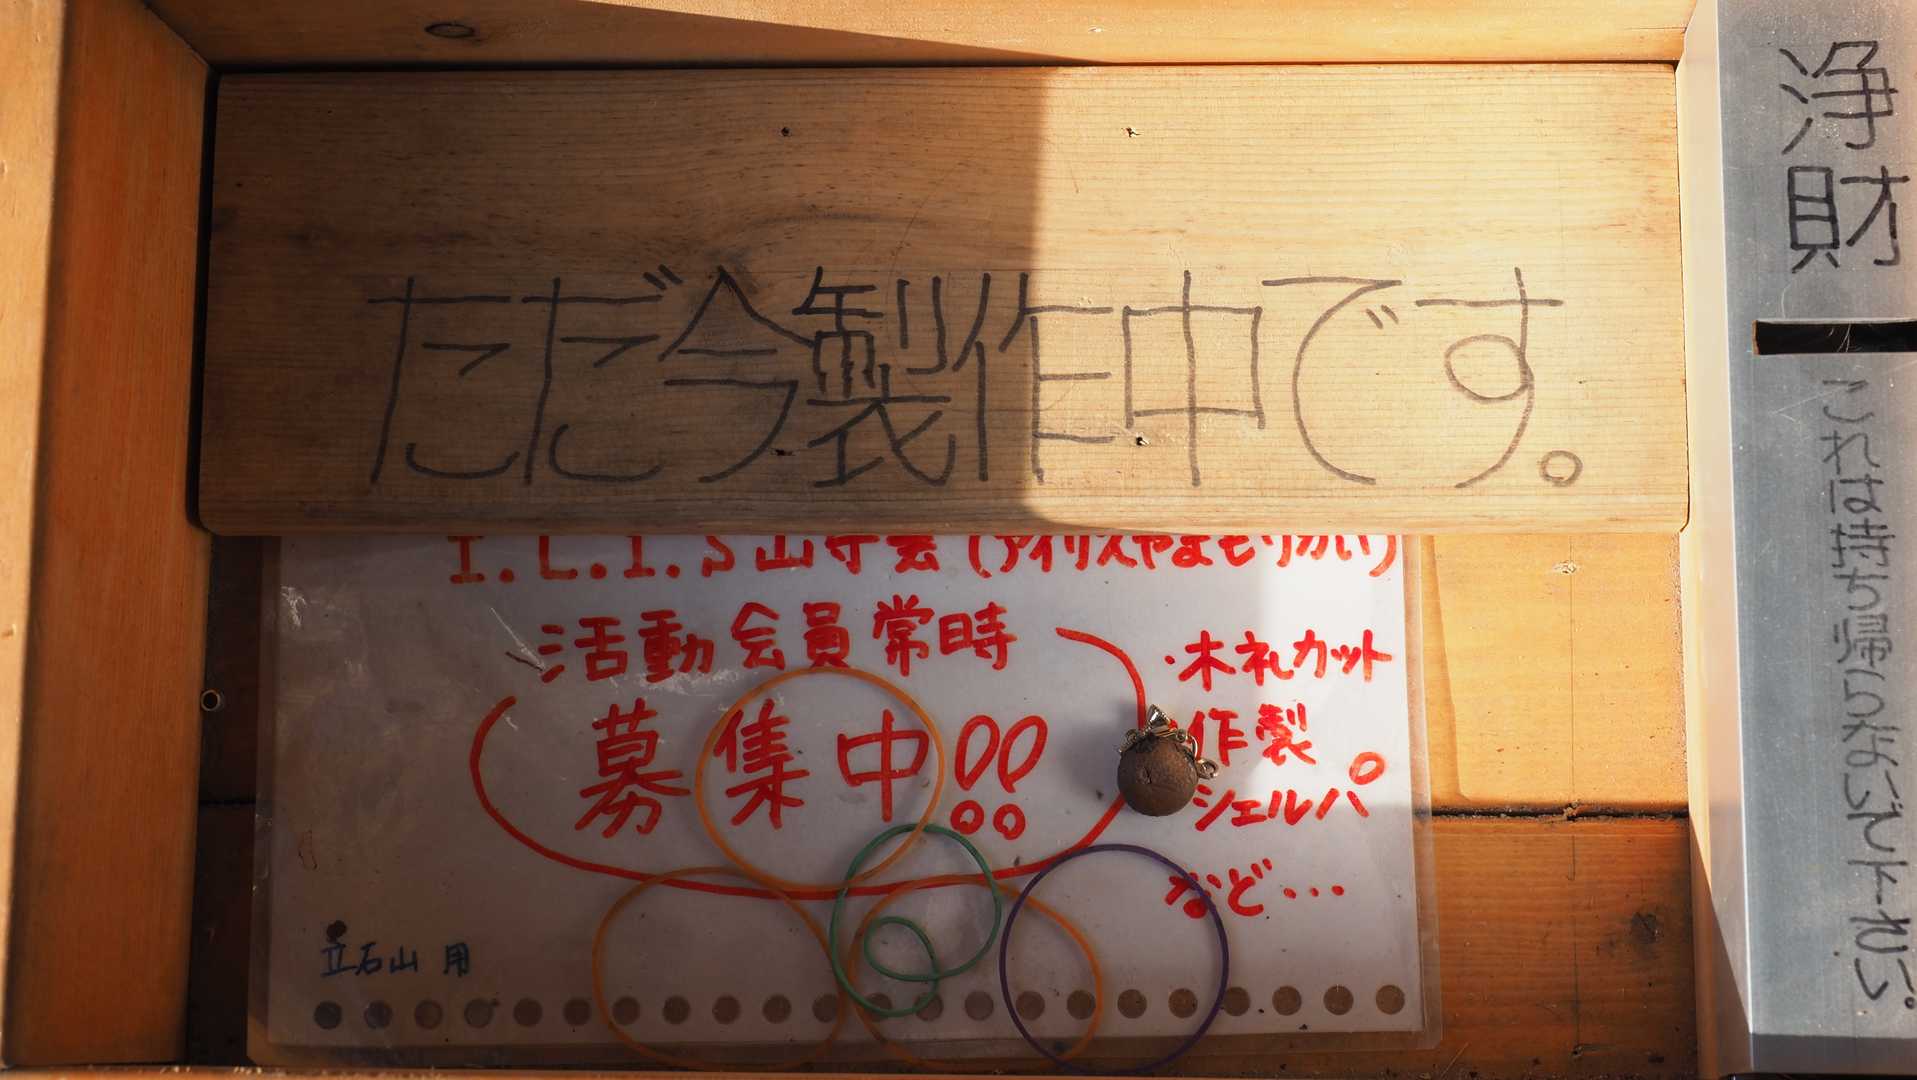 ただ今製作中です。
I.L.I.S山守会(アイリスやまもりかい)
活動会員常時
募集中!!
・木札カット
作製
シェルパ
など・・・
立石山 用
浄財
これは持ち帰らないで下さい。